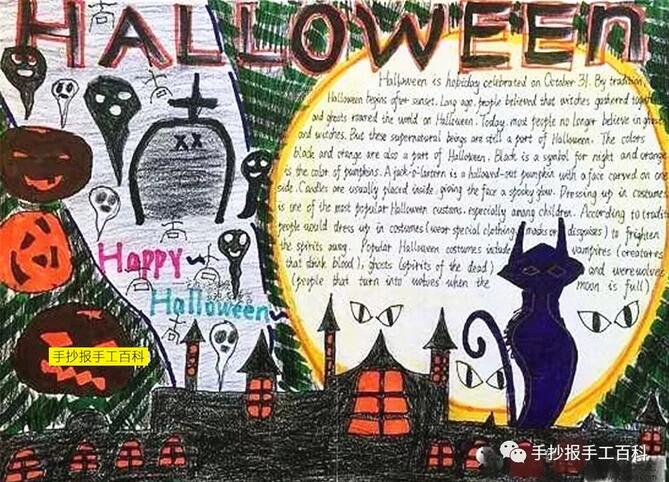 HALLOWEEN
Halloween is hobiday celebrated on October 31. By tradition,
Halloween begins after sunset. Long ago, people believed that witches gathered together
and ghosts roamed the world on Halloween. Today, most people no longer believe in ghosts
and witches. But these supernatural beings are still a part of Halloween. The colors
black and orange are also a part of Halloween. Black is a symbol for night and orange
is the color of pumpkins. A jack-o'-lantern is a hallowed-out pumpkin with a face carved on one
side. Candles are usually placed inside, giving the face a spooky glow. Dressing up in costumes
is one of the most popular Halloween customs, especially among children. According to tradi
people would dress up in costumes (wear special clothing, masks or disguises) to frighten
the spirits away. Popular Halloween costumes include vampires (creatures
that drink blood), ghosts (spirits of the dead) and werewolves
(people that turn into wolves when the moon is full)
Happy
Halloween
手抄报手工百科
手抄报手工百科